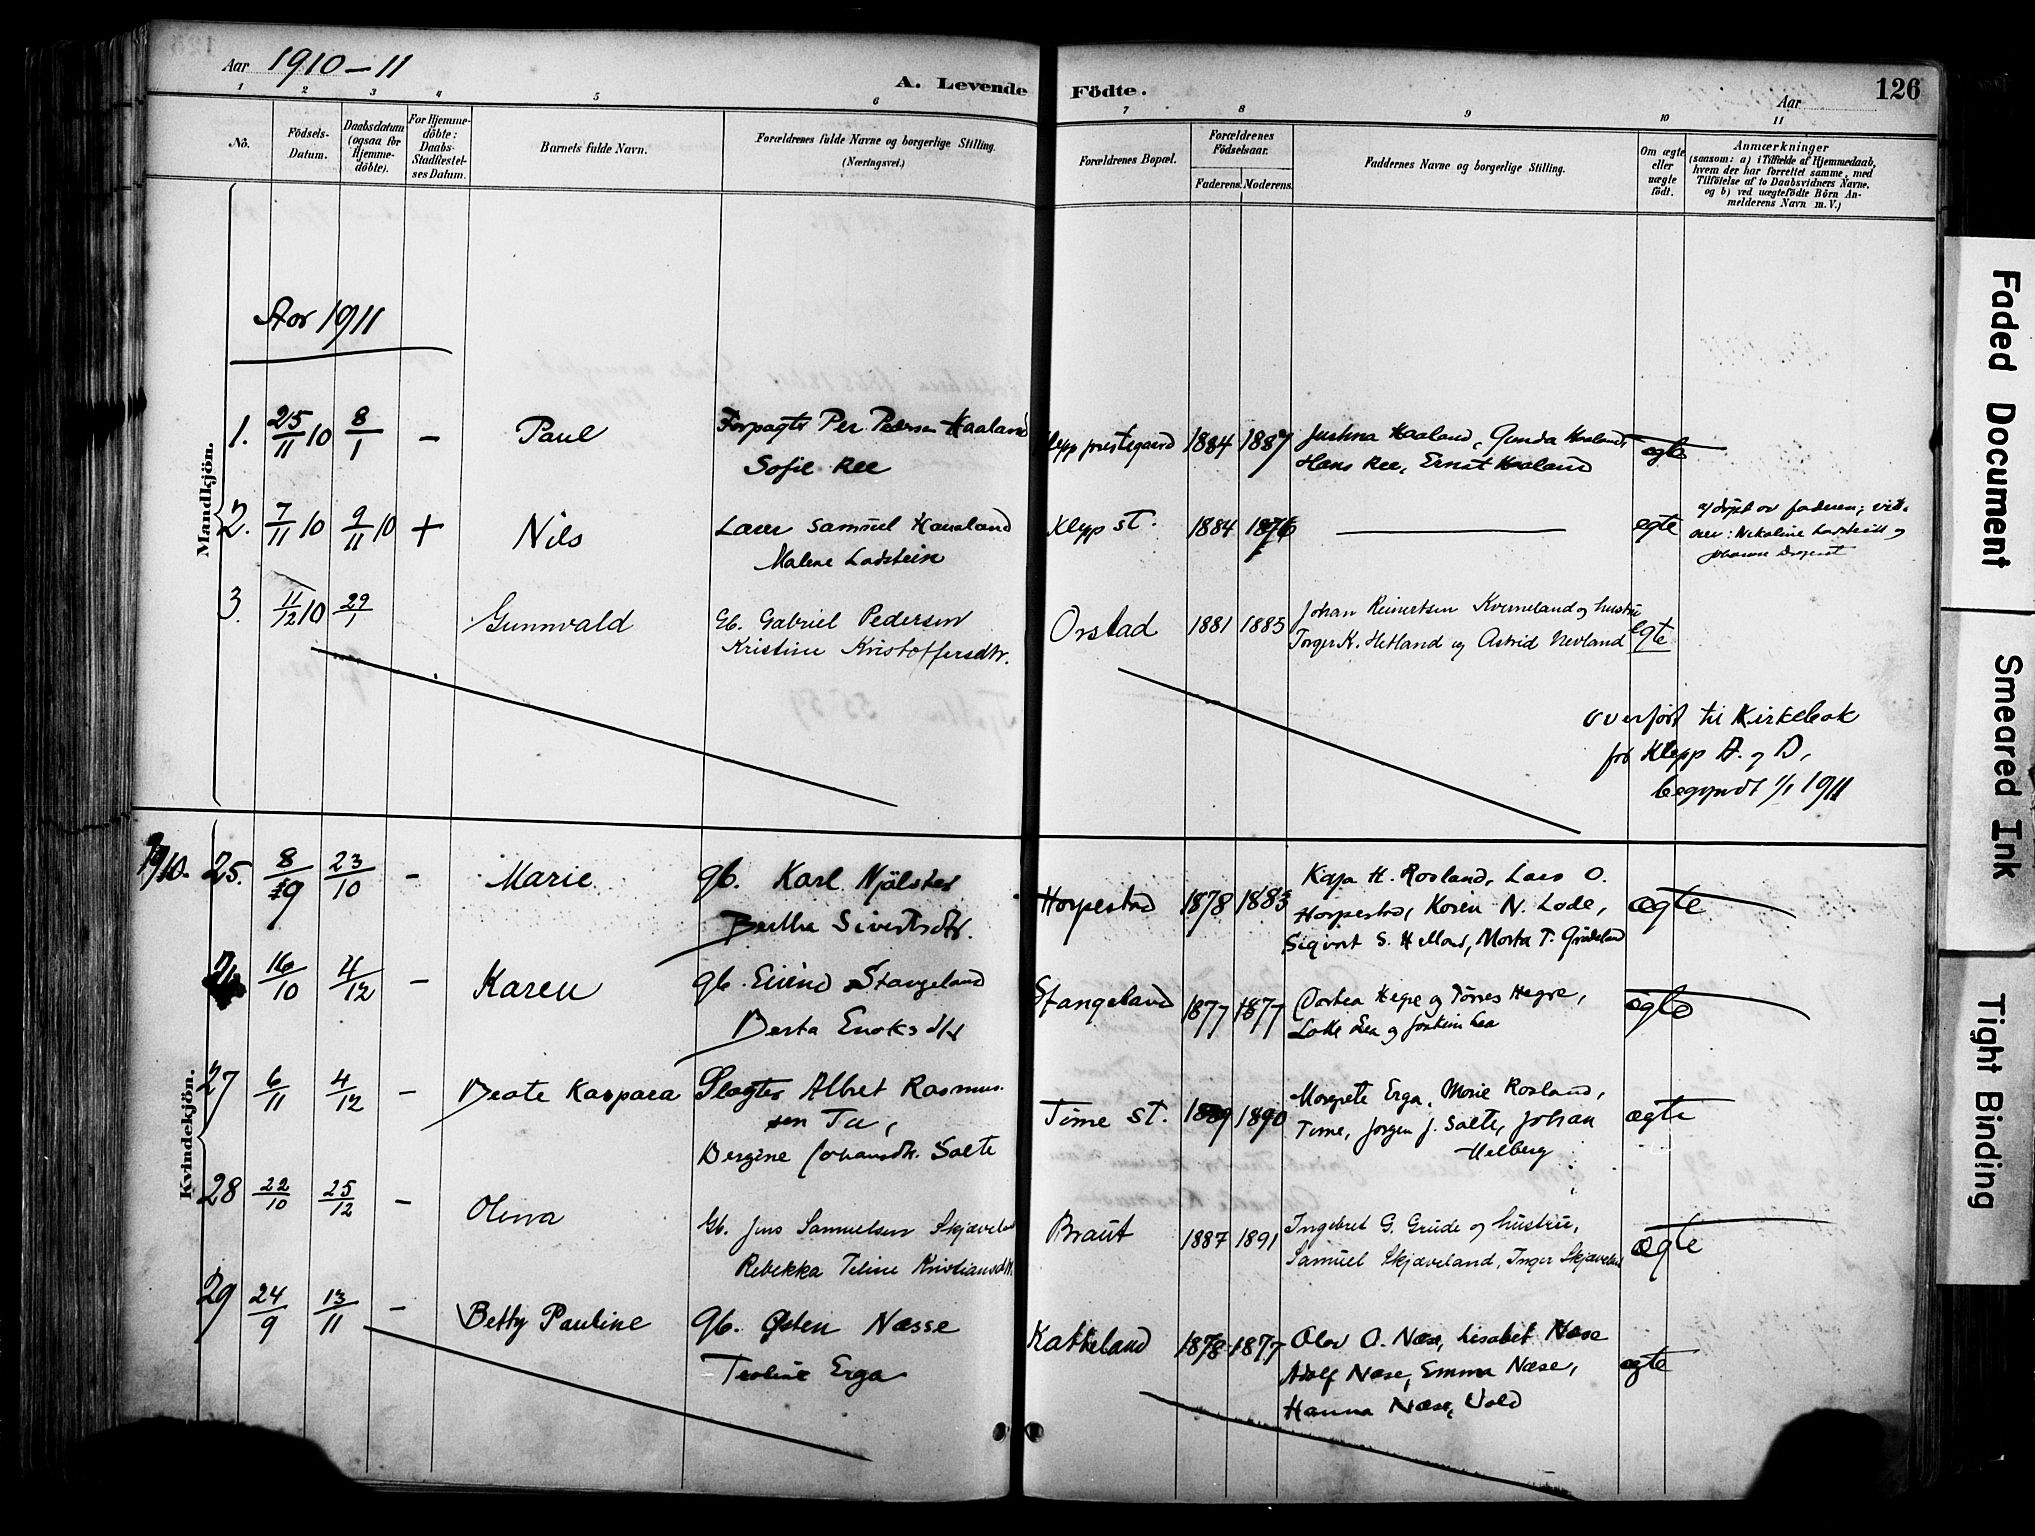 Aar 1910-11
A. Levende Födte.
Aar
126
1 2 3 4 5 6 7 8 9 10 11
Nô.
Födsels-
Datum.
Daabsdatum
(ogsaa for
Hjemme-
döbte).
For Hjemme-
döbte:
Daabs-
Stadfæstel-
ses Datum.
Barnets fulde Navn.
Forældrenes fulde Navne og borgerlige Stilling.
(Næringsvei.)
Forældrenes Bopæl.
Forældrenes
Födselsaar.
Faderens. Moderens.
Faddernes Navne og borgerlige Stilling.
Om ægte
eller
uægte
födt.
Anmærkninger
(saasom: a) i Tilfælde af Hjemmedaab,
hvem der har forrettet samme, med
Tilföielse af to Daabsvidners Navne,
og b) ved uægtefödte Börn An-
melderens Navn m. V.)
Mandkjön.
Aar 1911
1. 25/11 10 8/1 - Paul
Forpagter Per Pedersen Haaland
Sofie Ree
Klepp prestegaard 1884 1887
Justina Haaland, Gunda Haaland,
Hans Ree, Ernst Haaland
egte
2. 7/11 10 9/11 10 + Nils
Lærer Samuel Haaland
Malene Ladstein
Klepp st. 1884 1876
egte
av faderen; vid-
ner:
Johanne
3. 11/12 10 29/1 Gunnvald
Gb. Gabriel Pedersen
Kristine Kristoffersdtr.
Orstad 1881 1885
Johan Reinertsen Kverneland og hustru
Torger K. Hetland og Astrid Nevland
egte
overført til Kirkebok
for Klepp A. og D,
begyndt 1/1 1911
Kvindekjön.
1910. 25. 8/9 23/10 - Marie
gb. Karl Njølstad
Bertha Sivertsdtr.
Horpestad 1878 1883
Kaja H. Rosland, Lars O.
Horpestad, Karen N. Lode,
Sigvart S. Helland, Marta T. Grødeland
ægte
16/10 4/12 - Karen
gb. Eivind Stangeland
Berta Enoksdtr
Stangeland 1877 1877
Dorthea Hegre og Tørres Hegre,
Lotte Lea og Joakim Lea
ægte
27 6/11 4/12 - Beate Kaspara
Slagter Albret Rasmus-
sen Tu,
Bergine Johansdtr. Salte
Time st. 1889 1890
Margrete Erga, Marie Rosland,
Time, Jørgen J. Salte, Johan
Helberg
ægte
28 22/10 25/12 - Olena
Gb. Jens Samuelsen Skjæveland
Rebekka Teline Kristiansdtr.
Braut 1887 1891
Ingebret G. Grude og hustru,
Samuel Skjæveland, Inger Skjæveland
Ægte
29 24/9 13/11 - Betty Pauline
gb. Østen Næsse
Teoline Erga
Katteland 1878 1877
Olav O. Næse, Lisabet Næse
Adolf Næse, Emma Næse,
Hanna Næse, Vold
egte
Faded Document
Smeared Ink
Tight Binding